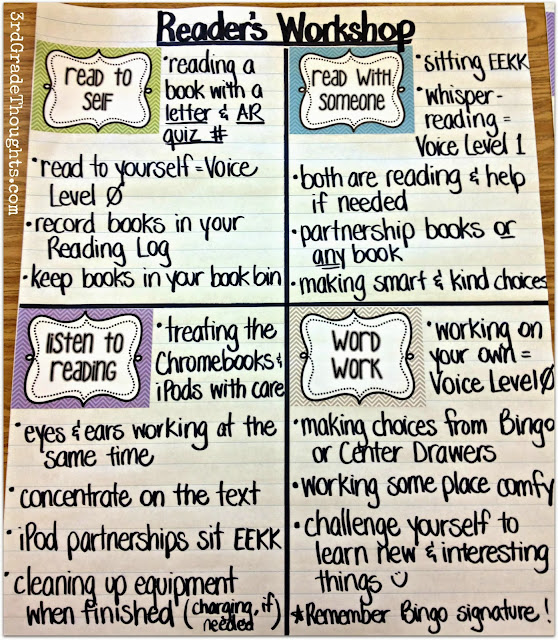 3rdGradeThoughts.com
Reader's Workshop
READ TO
SELF
•reading a
book with a
letter & AR
quiz #
•read to yourself = Voice
Level 0
•record books in your
Reading Log
•keep books in your book bin
READ WITH
SOMEONE
•sitting EEKK
•whisper-
reading =
Voice Level 1
•both are reading & help
if needed
•partnership books or
any book
•making smart & kind choices
LISTEN TO
READING
•treating the
Chromebooks &
iPods with care
•eyes & ears working at the
same time
•concentrate on the text
•iPod partnerships sit EEKK
•cleaning up equipment
when finished (charging, if
needed)
WORD
WORK
•working on
your own =
Voice Level 0
•making choices from Bingo
or Center Drawers
•working some place comfy
•challenge yourself to
learn new & interesting
things
*Remember Bingo signature!